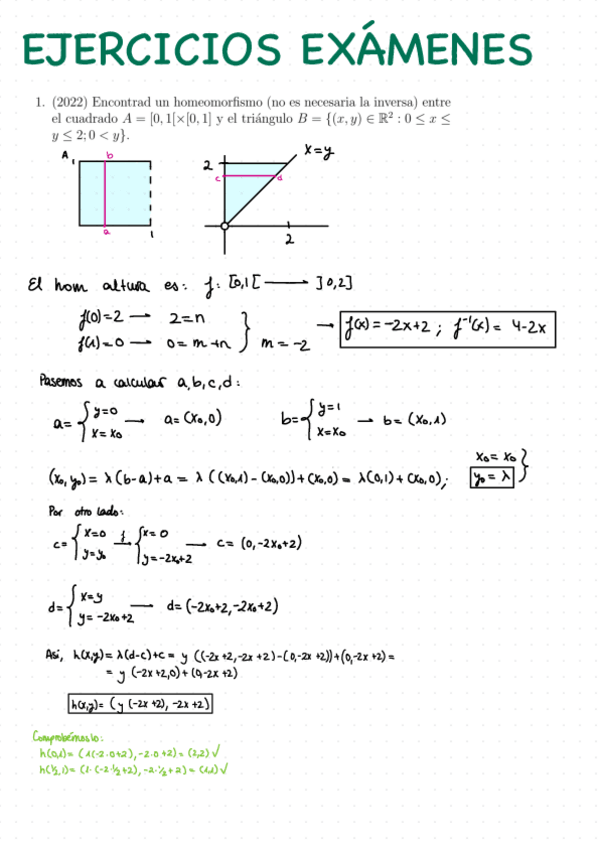 EJERCICIOS EXÁMENES
1. (2022) Encontrad un homeomorfismo (no es necesaria la inversa) entre
el cuadrado A = [0, 1[×[0, 1] y el triángulo B = {(x, y) ∈ ℝ² : 0 ≤ x ≤
y ≤ 2; 0 < y}.
A 1 b
a 1
2 c d x=y
2
El hom altura es: f: [0,1[ → ]0,2]
f(0)=2 → 2=n
f(1)=0 → 0=m+n } m=-2 → f(x)=-2x+2; f⁻¹(x)= 4-2x
Pasemos a calcular a,b,c,d:
a= { y=0 x=x₀ → a=(x₀,0) b= { y=1 x=x₀ → b=(x₀,1)
(x₀,y₀)= λ(b-a)+a = λ((x₀,1)-(x₀,0))+(x₀,0)= λ(0,1)+(x₀,0); x₀=x₀ y₀=λ }
Por otro lado:
c= { x=0 y=y₀ →f { x=0 y=-2x₀+2 → c=(0,-2x₀+2)
d= { x=y y=-2x₀+2 → d=(-2x₀+2,-2x₀+2)
Así, h(x,y)= λ(d-c)+c = y((-2x+2,-2x+2)-(0,-2x+2))+(0,-2x+2)=
= y(-2x+2,0)+(0,-2x+2)
h(x,y)= (y(-2x+2), -2x+2)
Comprobémoslo:
h(0,1)= (1(-2·0+2), -2·0+2)= (2,2) ✓
h(½,1)= (1·(-2·½+2), -2·½+2)= (1,1) ✓